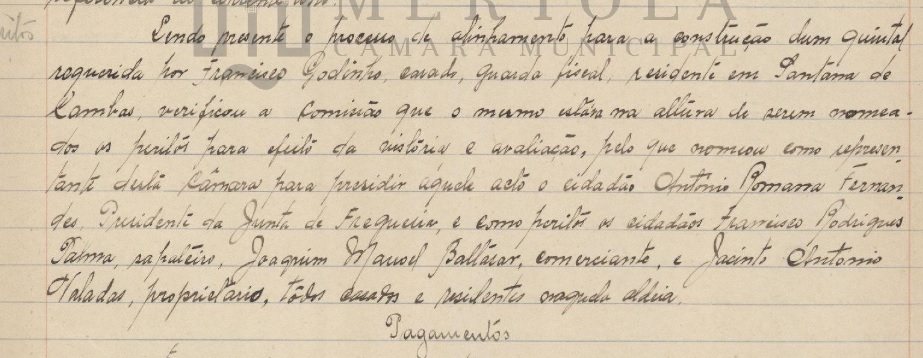 MÉRTOLA
CÂMARA MUNICIPAL
Sendo presente o processo de alinhamento para a construção dum quintal
requerida por Francisco Godinho, casado, guarda fiscal, residente em Santana de
Cambas, verificou a Comissão que o mesmo estava na altura de serem nomea-
dos os peritos para efeito da vistória e avaliação, pelo que nomeou como represen-
tante desta Câmara para presidir aquele acto o cidadão António Romana Fernan-
des, Presidente da Junta de Freguesia, e como peritos os cidadãos Francisco Rodrigues
Palma, sapateiro, Joaquim Manoel Baltazar, comerciante, e Jacinto Antonio
Valadas, proprietário, todos casados e residentes naquela aldeia.
Pagamentos